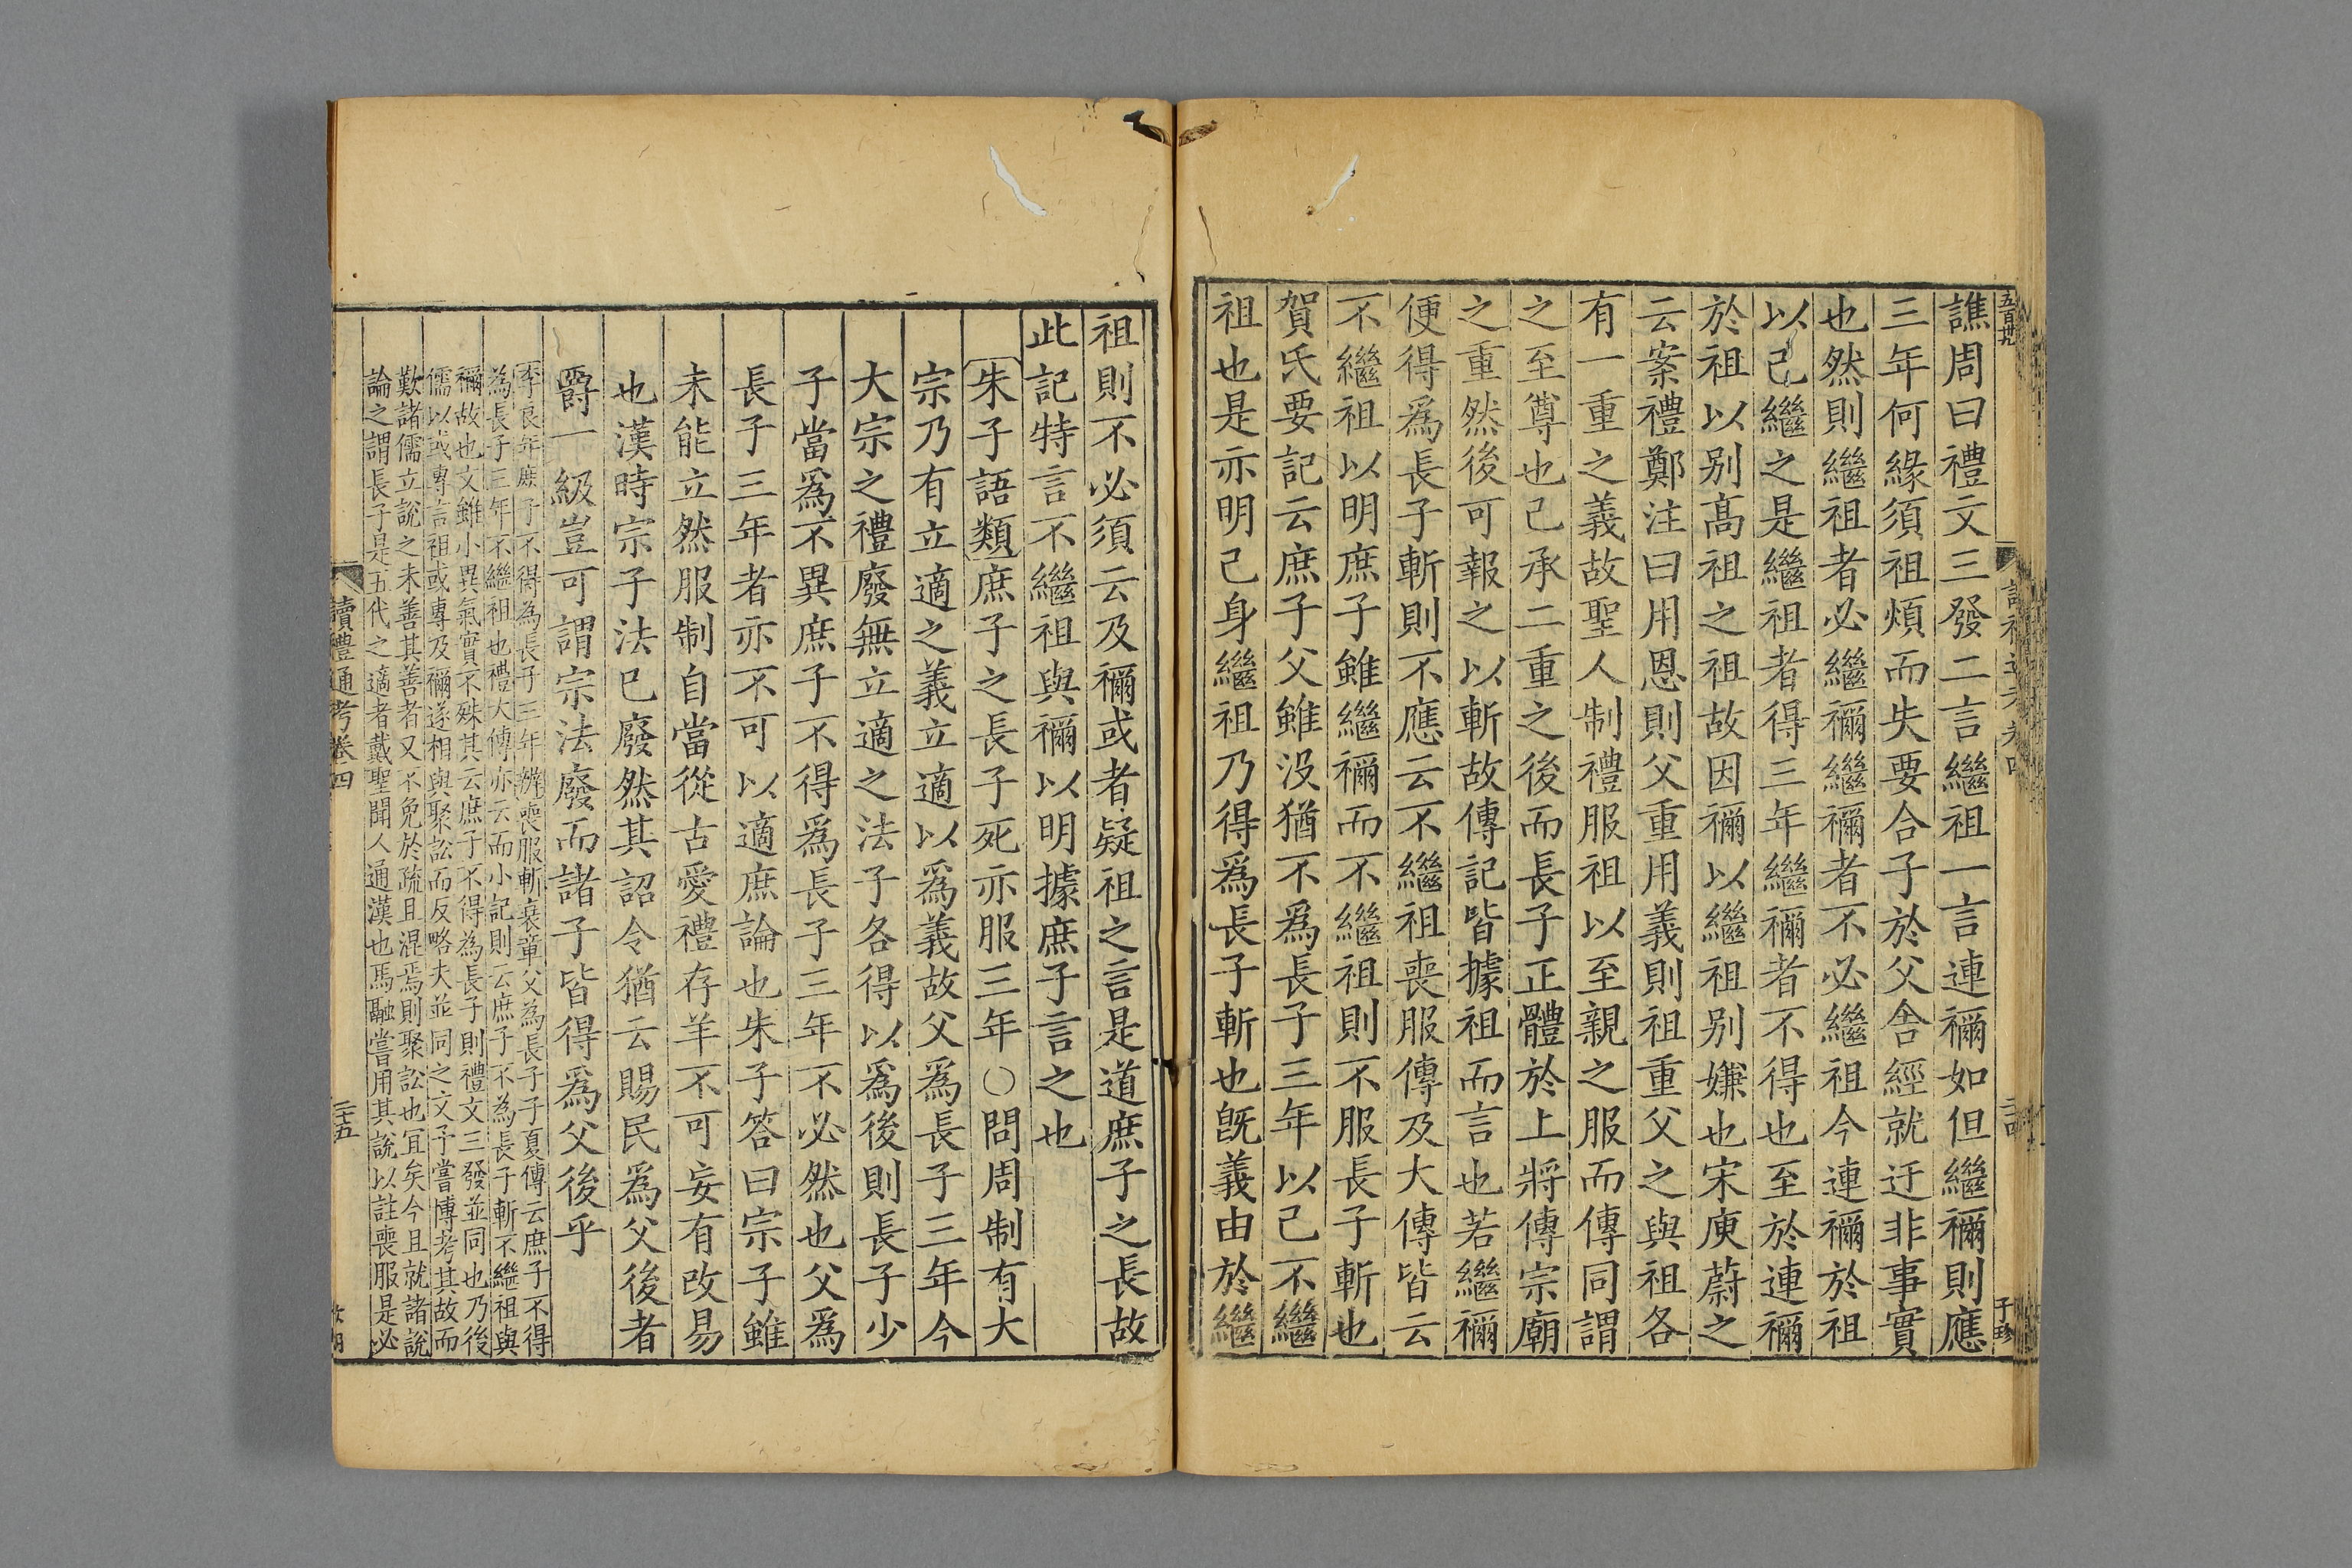 譙周曰禮文三發二言繼祖一言連禰如但繼禰則應
三年何緣須祖煩而失要合子於父舍經就迂非事實
也然則繼祖者必繼禰繼禰者不必繼祖今連禰於祖
以己繼之是繼祖者得三年繼禰者不得也至於連禰
於祖以别髙祖之祖故因禰以繼祖别嫌也宋庾蔚之
云案禮鄭注曰用恩則父重用義則祖重父之與祖各
有一重之義故聖人制禮服祖以至親之服而傳同謂
之至尊也己承二重之後而長子正體於上將傳宗廟
之重然後可報之以斬故傳記皆據祖而言也若繼禰
便得爲長子斬則不應云不繼祖喪服傳及大傳皆云
不繼祖以明庶子雖繼禰而不繼祖則不服長子斬也
賀氏要記云庶子父雖没猶不爲長子三年以己不繼
祖也是亦明己身繼祖乃得爲長子斬也旣義由於繼
祖則不必須云及禰或者疑祖之言是道庶子之長故
此記特言不繼祖與禰以明據庶子言之也
朱子語類庶子之長子死亦服三年○問周制有大
宗乃有立適之義立適以爲義故父爲長子三年今
大宗之禮廢無立適之法子各得以爲後則長子少
子當爲不異庶子不得爲長子三年不必然也父爲
長子三年者亦不可以適庶論也朱子答曰宗子雖
未能立然服制自當從古愛禮存羊不可妄有改易
也漢時宗子法已廢然其詔令猶云賜民爲父後者
爵一級豈可謂宗法廢而諸子皆得爲父後乎
李良年庶子不得為長子三年辨喪服斬衰章父為長子子夏傳云庶子不得
為長子三年不繼祖也禮大傳亦云而小記則云庶子不為長子斬不繼祖與
禰故也文雖小異氣實不殊其云庶子不得為長子則禮文三發並同也乃後
儒以或專言祖或專及禰遂相與聚訟而反略夫並同之文予嘗博考其故而
歎諸儒立說之未善其善者又不免於疏且混焉則聚訟也宜矣今且就諸說
論之謂長子是五代之適者戴聖聞人通漢也馬融嘗用其說以註喪服是必
讀禮通考卷四
二十五